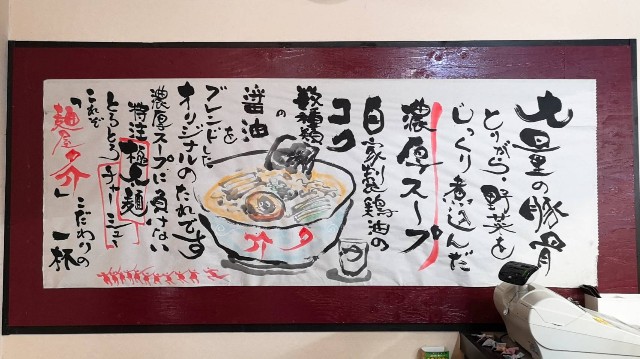 大量の豚骨
とりがら・野菜を
じっくり煮込んだ
濃厚スープ
自家製鶏油の
コク
数種類
の
醤油
を
ブレンドした
オリジナルのたれです
濃厚スープに負けない
特注極太麺
とろとろチャーシュー
これぞ
「麺屋夕介」
こだわりの
一杯
夕介